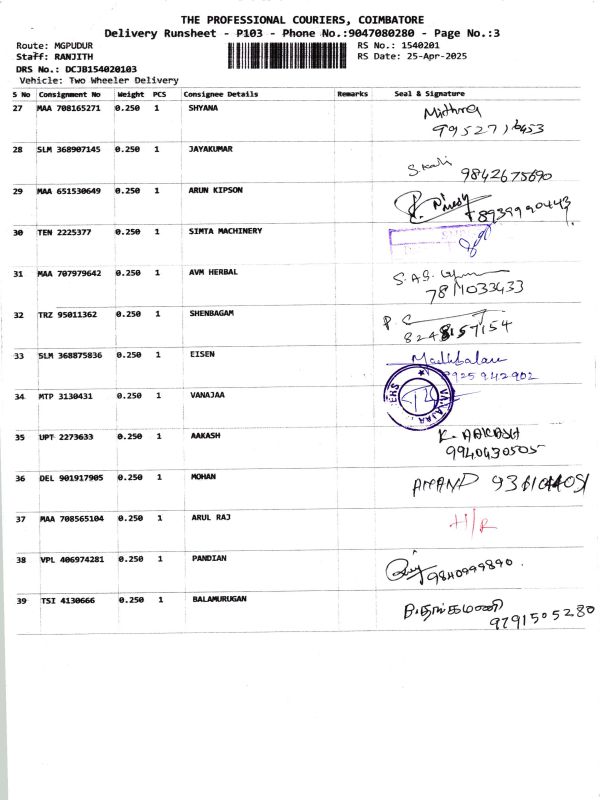 THE PROFESSIONAL COURIERS, COIMBATORE
Delivery Runsheet - P103 - Phone No.:9047080280 - Page No.:3
Route: MGPUDUR
Staff: RANJITH
DRS No.: DCJB154020103
Vehicle: Two Wheeler Delivery
RS No.: 1540201
RS Date: 25-Apr-2025
S No Consignment No Weight PCS Consignee Details Remarks Seal & Signature
27 MAA 708165271 0.250 1 SHYANA Mithra
28 SLM 368907145 0.250 1 JAYAKUMAR
9842675690
29 MAA 651530649 0.250 1 ARUN KIPSON
8939990443
30 TEN 2225377 0.250 1 SIMTA MACHINERY
31 MAA 707979642 0.250 1 AVM HERBAL
32 TRZ 95011362 0.250 1 SHENBAGAM
33 SLM 368875836 0.250 1 EISEN
8925942902
34 MTP 3130431 0.250 1 VANAJAA
35 UPT 2273633 0.250 1 AAKASH K. AAKASH
9940430505
36 DEL 901917905 0.250 1 MOHAN ANAND
37 MAA 708565104 0.250 1 ARUL RAJ
38 VPL 406974281 0.250 1 PANDIAN
9840999890
39 TSI 4130666 0.250 1 BALAMURUGAN B.தங்கமணி
9791505280